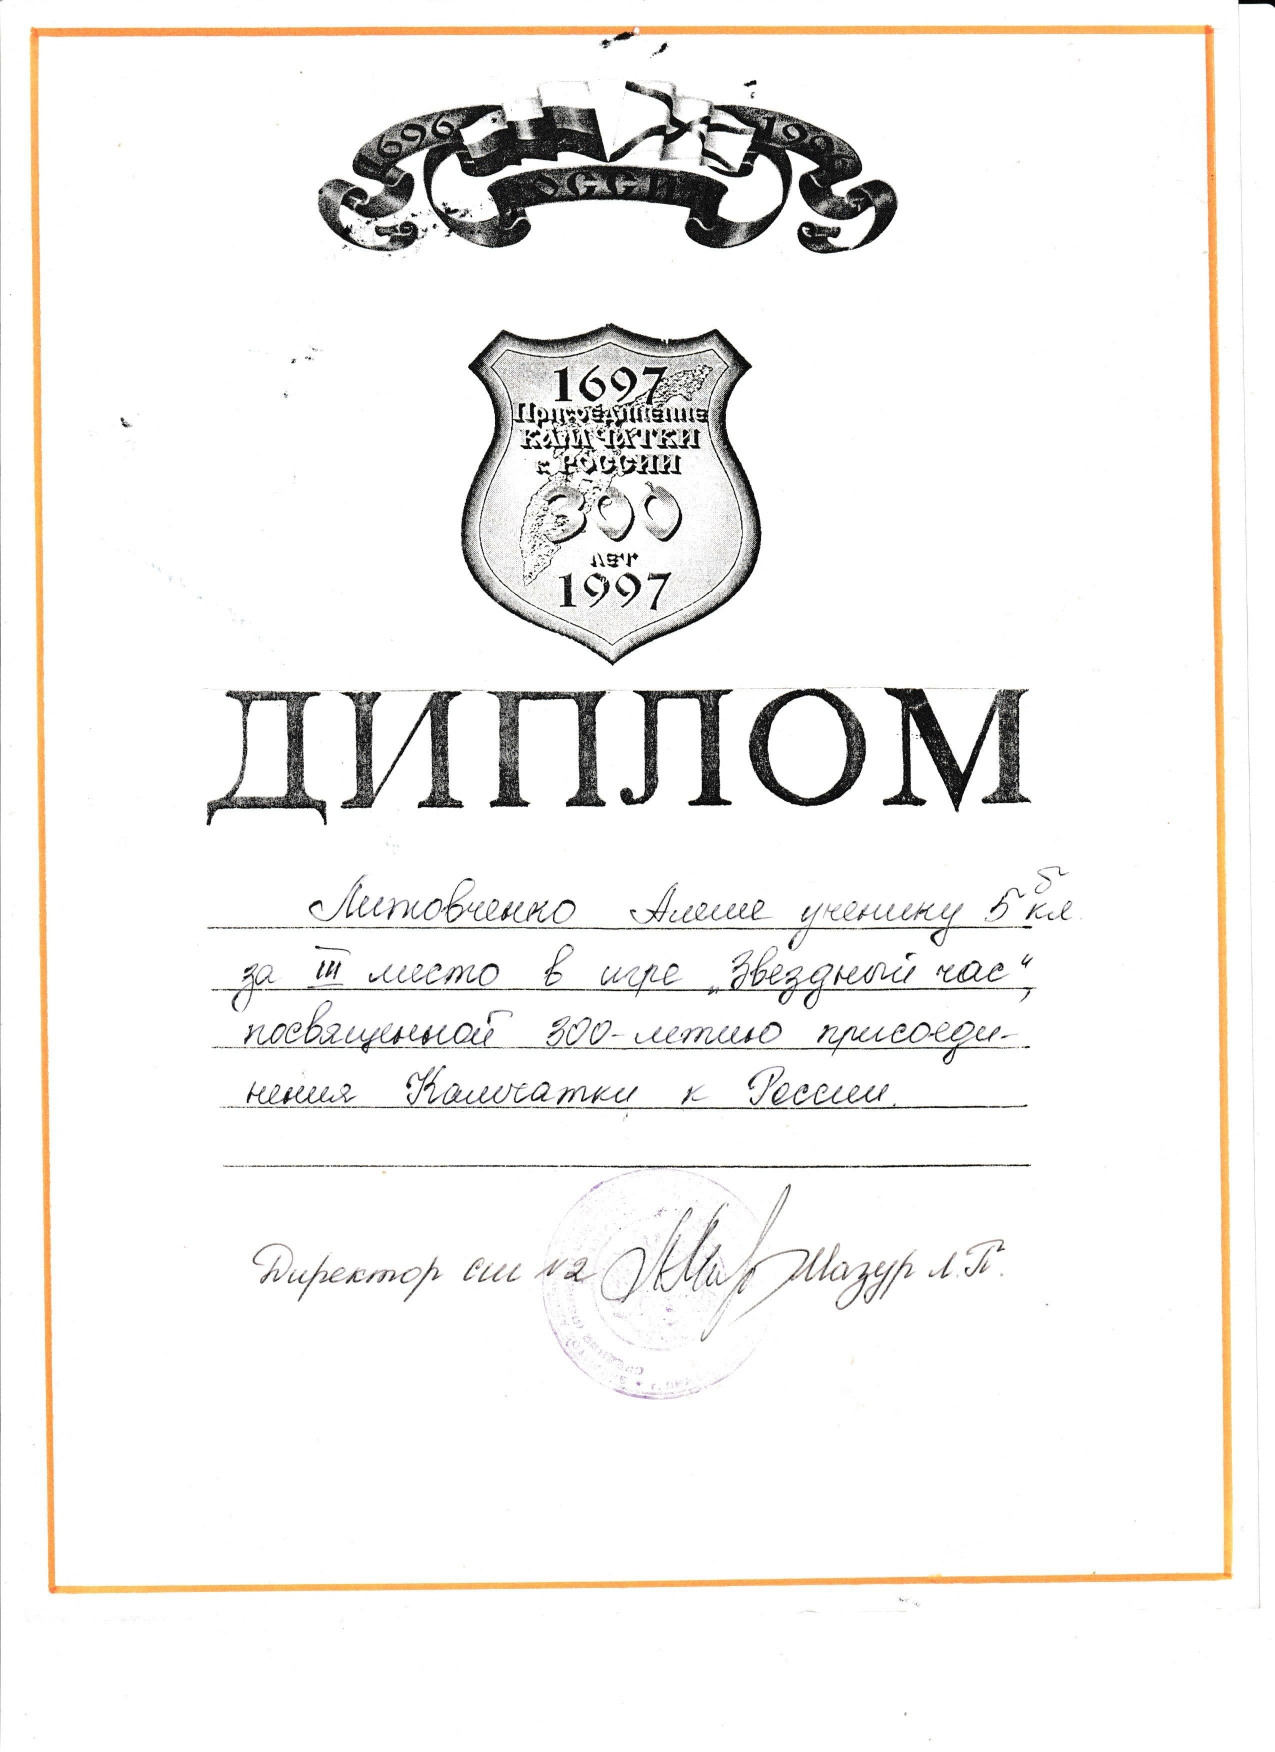 1696 1996
РОССИЯ
1697
Присоединение
КАМЧАТКИ
к РОССИИ
300
лет
1997
ДИПЛОМ
Литовченко Алеше ученику 5 б кл.
за III место в игре „Звездный час“,
посвященной 300-летию присоеди-
нения Камчатки к России.
Директор сш №2 Мазур Л.П.